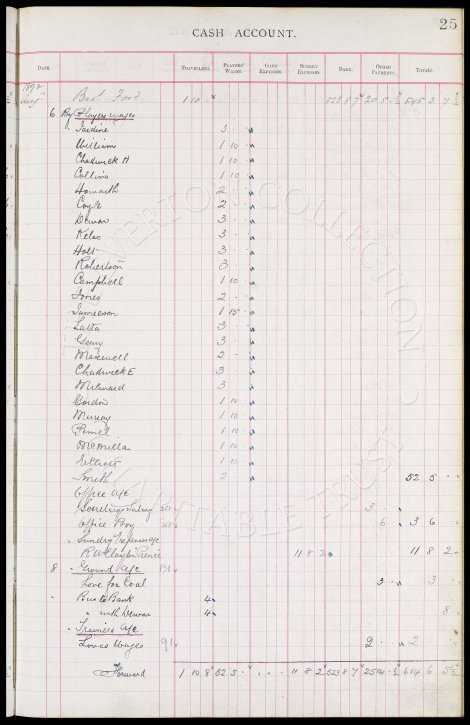 25
CASH ACCOUNT.
DATE. TRAVELLING. PLAYERS' WAGES. GATE EXPENSES SUNDRY EXPENSES. BANK. OTHER PAYMENTS. TOTALS.
Bot Ford 1 10 523 8 7 20 5 545 3 7
6 By Players Wages
Jardine 3
William 1 10
Chadwick A 1 10
Collins 1 10
Howarth 2
Coyle 2
Dewar 3
Kelso 3
Holt 3
Robertson 3
Campbell 1 10
Jones 2
Jamieson 1 15
Latta 3
Geary 3
Maxwell 2
Chadwick E 3
Milward 3
Gordon 1 10
Murray 1 10
Pinnel 1 10
McMillan 1 10
Elliott 1 10
Smith 2 52 5
Office a/c
Secretary Salary 3
Office Boy 6 3 6
Sundry Expenses a/c
R W Clayton 11 8 2 11 8 2
8 Ground a/c 136
Love for Coal 3 3
Bus to Bank 4
" with Dewar 4 8
Trainers a/c
Loves Wages 91 2 2
Forward 1 10 8 52 5 11 8 2 523 8 7 25 14 614 6
EVERTON COLLECTION
CHARITABLE TRUST